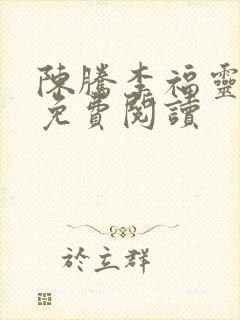 陳騰李福靈
免費閱讀
於立群